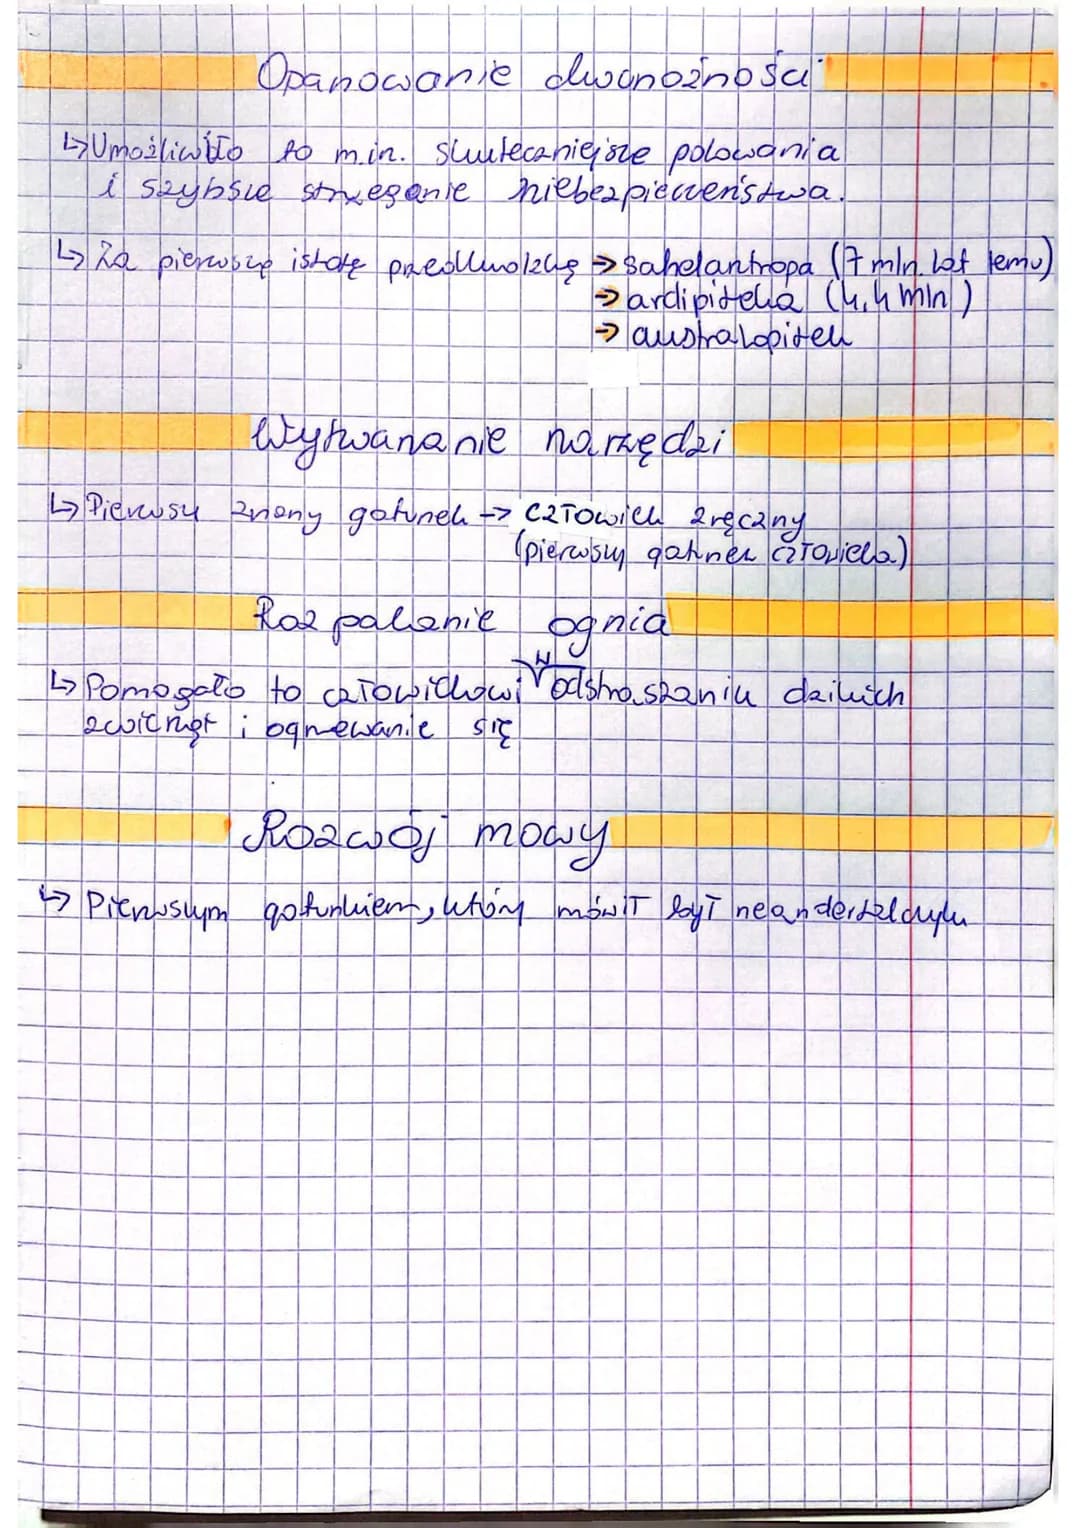 Opanowanie dwunożności
↳ Umożliwiło to m.in. skuteczniejsze polowania
i szybsze strzeganie niebezpieczeństwa.
↳ Za pierwszą istotę przedludzką → sahelantropa (7 mln. lat temu)
→ ardipiteka (4,4 mln)
→ australopitek
Wytwarzanie narzędzi
↳ Pierwszy znany gatunek → człowiek zręczny
(pierwszy gatunek człowieka)
Rozpalanie ognia
↳ Pomogało to człowiekowi w odstraszaniu dzikich
zwierząt i ogrzewanie się
Rozwój mowy
↳ Pierwszym gatunkiem, który mówił był neandertalczyk